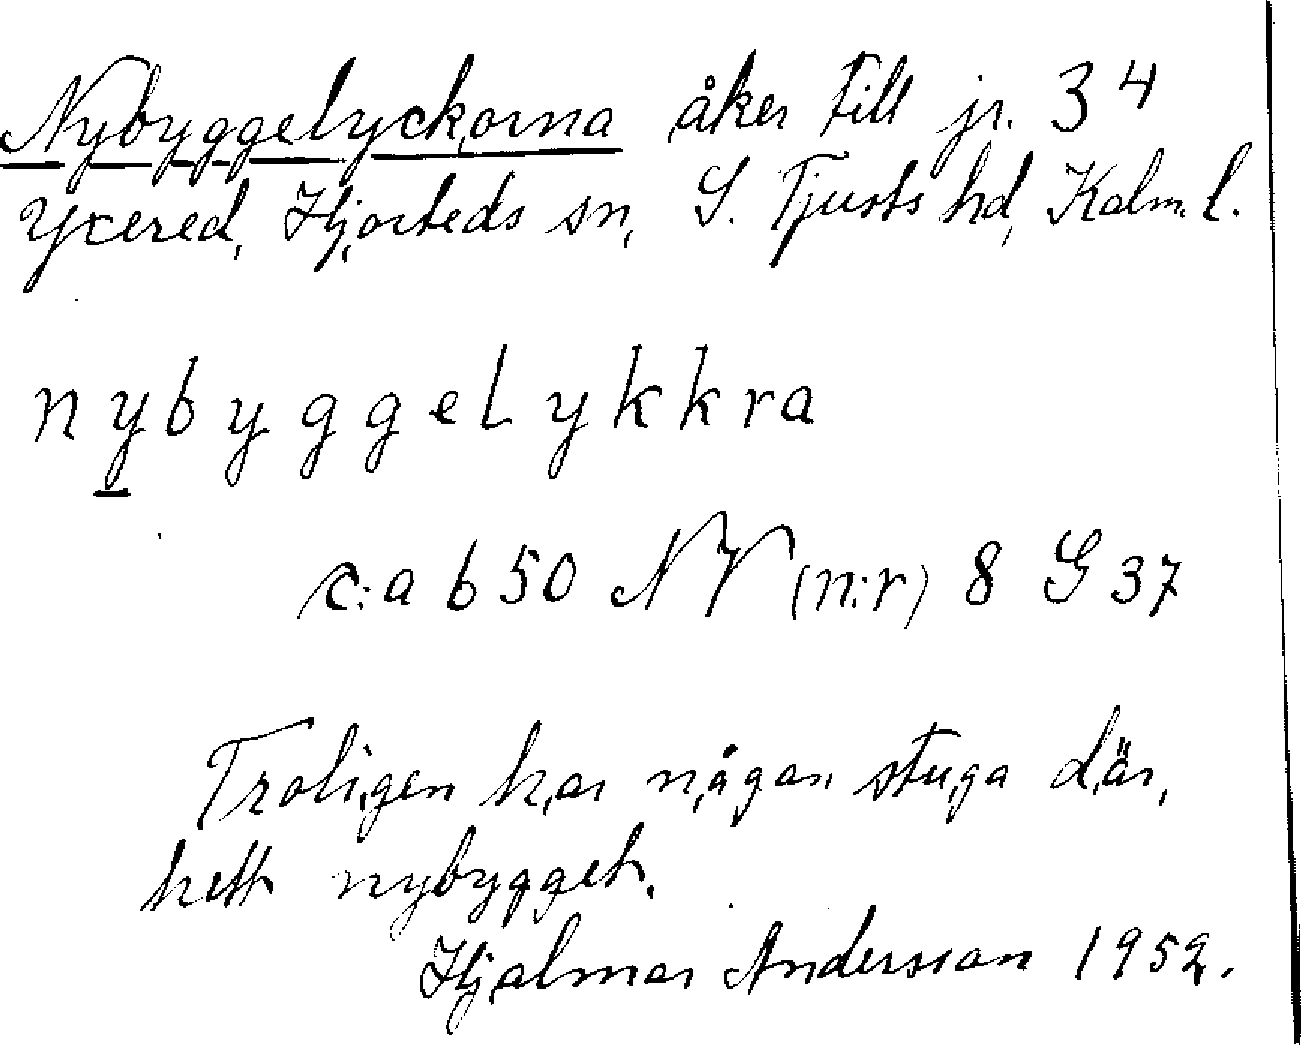 Nybyggelyckorna åker till jr. 34
Yxered, Hjorteds sn, S. Tjusts hd, Kalm. l.
nybyggelykkra
c:a 650 NV (n:r) 8 G 37
Troligen har någon stuga där,
hett nybygget.
Hjalmar Andersson 1952.